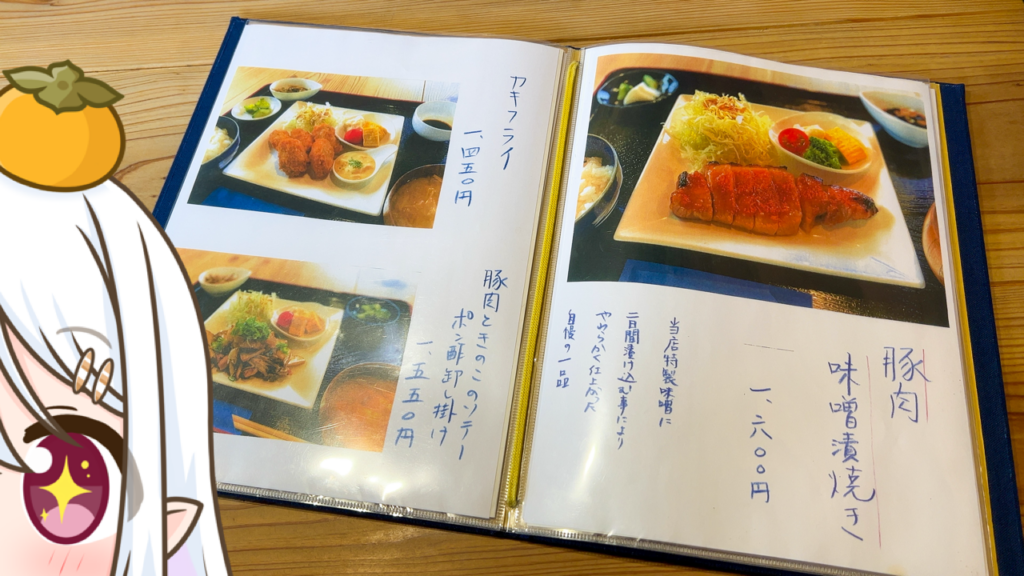 豚肉
味噌漬焼き
一、六〇〇円
当店特製味噌に
二日間漬け込む事により
やわらかく仕上がた
自慢の一品
カキフライ
一、四五〇円
豚肉ときのこのソテー
ポン酢卸し掛け
一、五五〇円